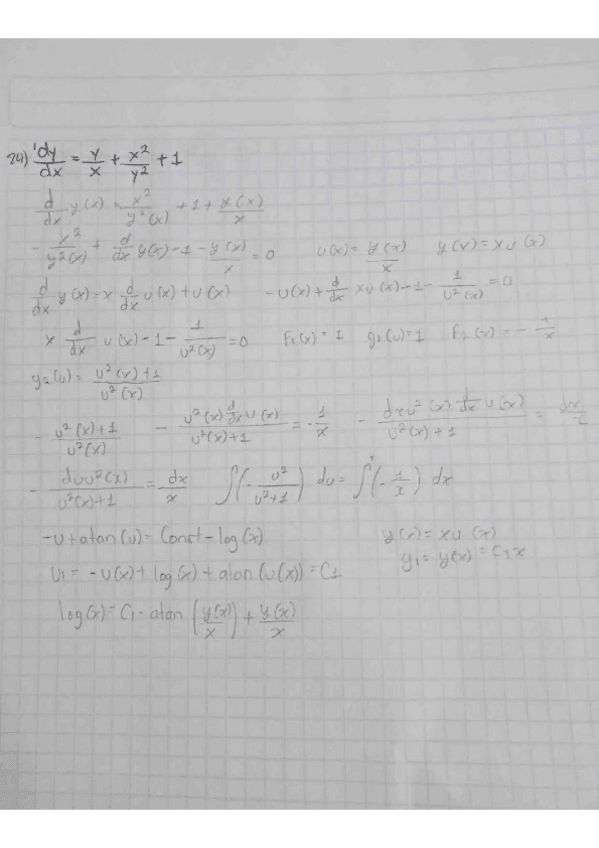 24) dy/dx = y/x + x²/y² + 1
d/dx y(x) = x²/y²(x) + 1 + y(x)/x
- x²/y²(x) + d/dx y(x) - 1 - y(x)/x = 0 u(x) = y(x)/x y(x) = x u(x)
d/dx y(x) = x d/dx u(x) + u(x) - u(x) + d/dx x u(x) - 1 - 1/u²(x) = 0
x d/dx u(x) - 1 - 1/u²(x) = 0 f₁(x) = 1 g₁(u) = 1 f₂(x) = - 1/x
g₂(u) = u²(x)+1/u²(x)
- u²(x)+1/u²(x) - u²(x) d/dx u(x)/u²(x)+1 = - 1/x - dx u²(x) d/dx u(x)/u²(x)+1 = dx/x
- du u²(x)/u²(x)+1 = dx/x ∫(- u²/u²+1) du = ∫(- 1/x) dx
-u + atan(u) = Const - log(x) y(x) = x u(x)
U₁ = -u(x) + log(x) + atan(u(x)) = C₁ g₁ = y(x) = C₁x
log(x) = C₁ - atan (y(x)/x) + y(x)/x